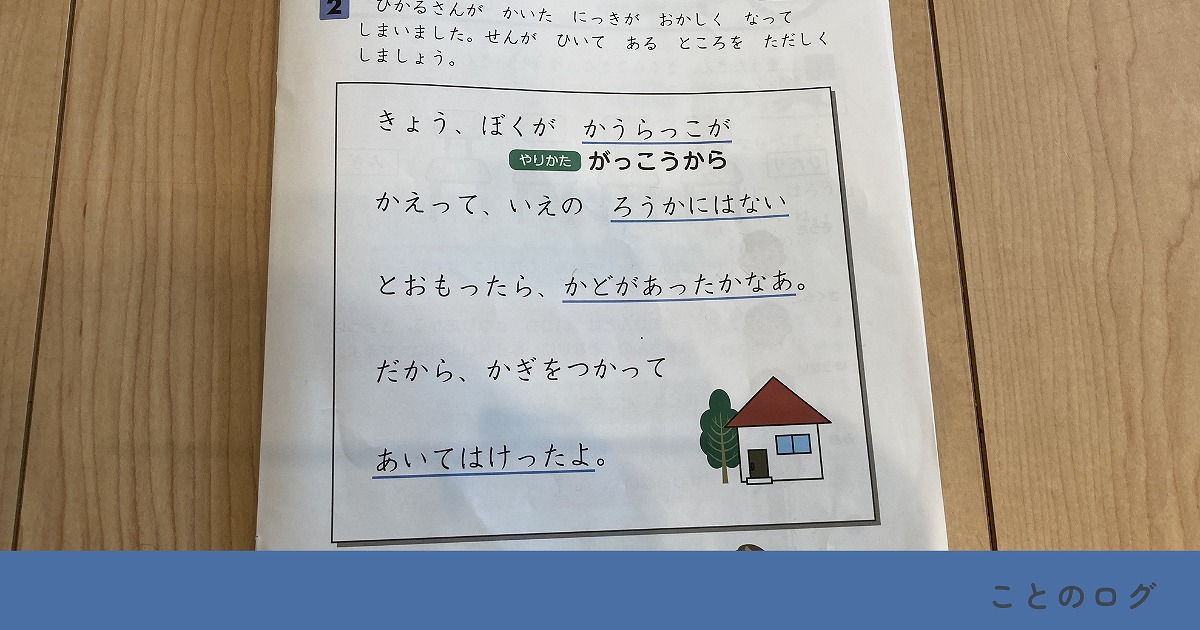 2
ひかるさんが かいた にっきが おかしく なって
しまいました。せんが ひいて ある ところを ただしく
しましょう。
きょう、ぼくが かうらっこが
やりかた がっこうから
かえって、いえの ろうかにはない
とおもったら、かどがあったかなあ。
だから、かぎをつかって
あいてはけったよ。
ことのログ